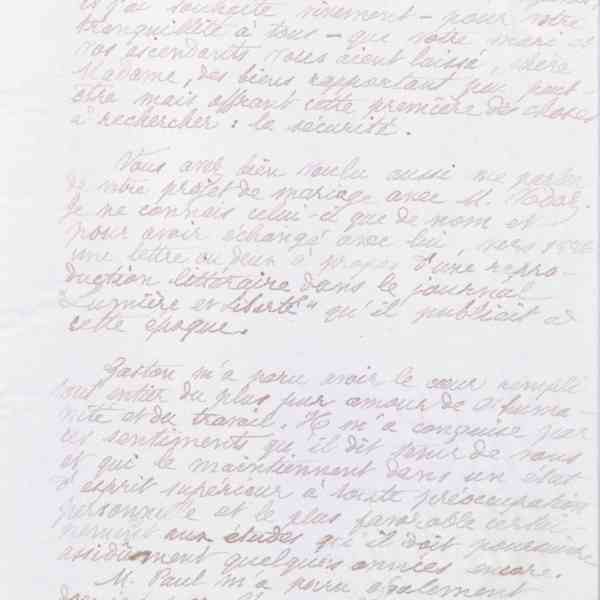 et j'ai souhaité vivement – pour votre
tranquillité à tous – que votre mari et
vos ascendants vous aient laissé, chère
Madame, des biens rapportant peu peut-
être mais offrant cette première des choses
à rechercher : la sécurité.
Vous avez bien voulu aussi me parler
de votre projet de mariage avec M.
Je ne connais celui-ci que de nom et
pour avoir échangé avec lui, vers
une lettre ou deux à propos d'une repro-
duction littéraire dans le journal
"Lumière et Liberté" qu'il publiait à
cette époque.
Gaston m'a paru avoir le cœur rempli
tout entier du plus pur amour de l'huma-
nité et du travail. Il m'a conquise par
ces sentiments qu'il dit tenir de vous
et qui le maintiennent dans un état
d'esprit supérieur à toute préoccupation
personnelle et le plus favorable
aux études qu'il doit poursuivre
assidûment quelques années encore.
M. Paul m'a paru également